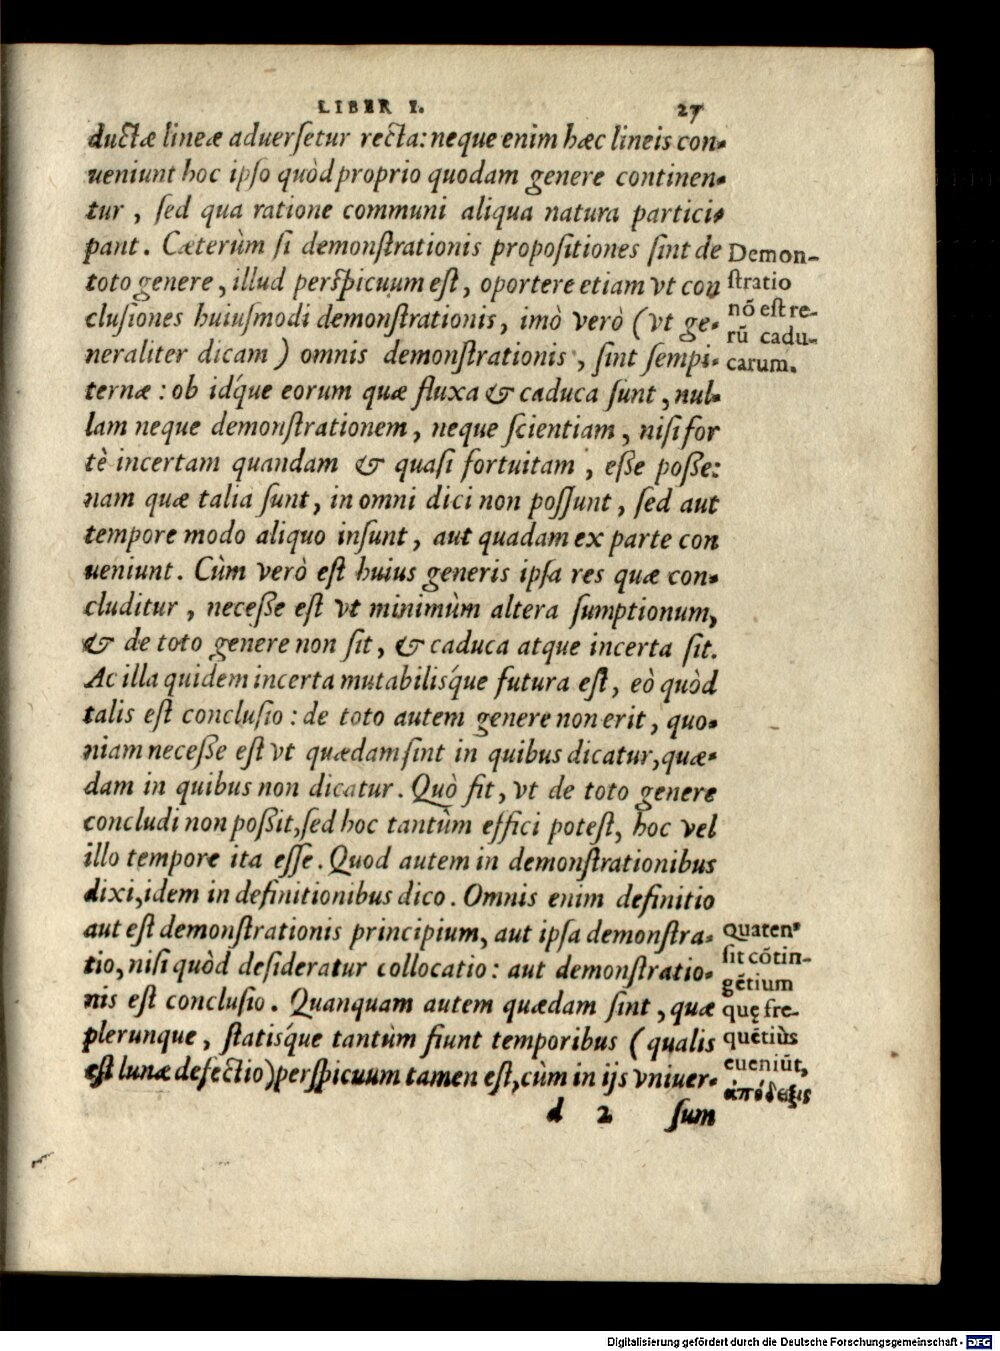 LIBER I. 27
ductæ lineæ aduersetur recta: neque enim hæc lineis con-
ueniunt hoc ipso quòd proprio quodam genere continen-
tur, sed qua ratione communi aliqua natura partici-
pant. Cæterùm si demonstrationis propositiones sint de
toto genere, illud perspicuum est, oportere etiam vt con
clusiones huiusmodi demonstrationis, imò verò (vt ge-
neraliter dicam) omnis demonstrationis, sint sempi-
ternæ: ob idq́ue eorum quæ fluxa & caduca sunt, nul-
lam neque demonstrationem, neque scientiam, nisi for
tè incertam quandam & quasi fortuitam, esse posse:
nam quæ talia sunt, in omni dici non possunt, sed aut
tempore modo aliquo insunt, aut quadam ex parte con
ueniunt. Cùm verò est huius generis ipsa res quæ con-
cluditur, necesse est vt minimùm altera sumptionum,
& de toto genere non sit, & caduca atque incerta sit.
Ac illa quidem incerta mutabilisq́ue futura est, eò quòd
talis est conclusio: de toto autem genere non erit, quo-
niam necesse est vt quædam sint in quibus dicatur, quæ-
dam in quibus non dicatur. Quò fit, vt de toto genere
concludi non possit, sed hoc tantùm effici potest, hoc vel
illo tempore ita esse. Quod autem in demonstrationibus
dixi, idem in definitionibus dico. Omnis enim definitio
aut est demonstrationis principium, aut ipsa demonstra-
tio, nisi quòd desideratur collocatio: aut demonstratio-
nis est conclusio. Quanquam autem quædam sint, quæ
plerunque, statisq́ue tantùm fiunt temporibus (qualis
est lunæ defectio) perspicuum tamen est, cùm in ijs vniuer-
d 2 sum
Demon-
stratio
nõ est re-
rũ cadu-
carum.
Quaten'
sit cõtin-
gẽtium
quę fre-
quẽtiùs
eueniũt,
ἀπόδειξις
Digitalisierung gefördert durch die Deutsche Forschungsgemeinschaft - DFG